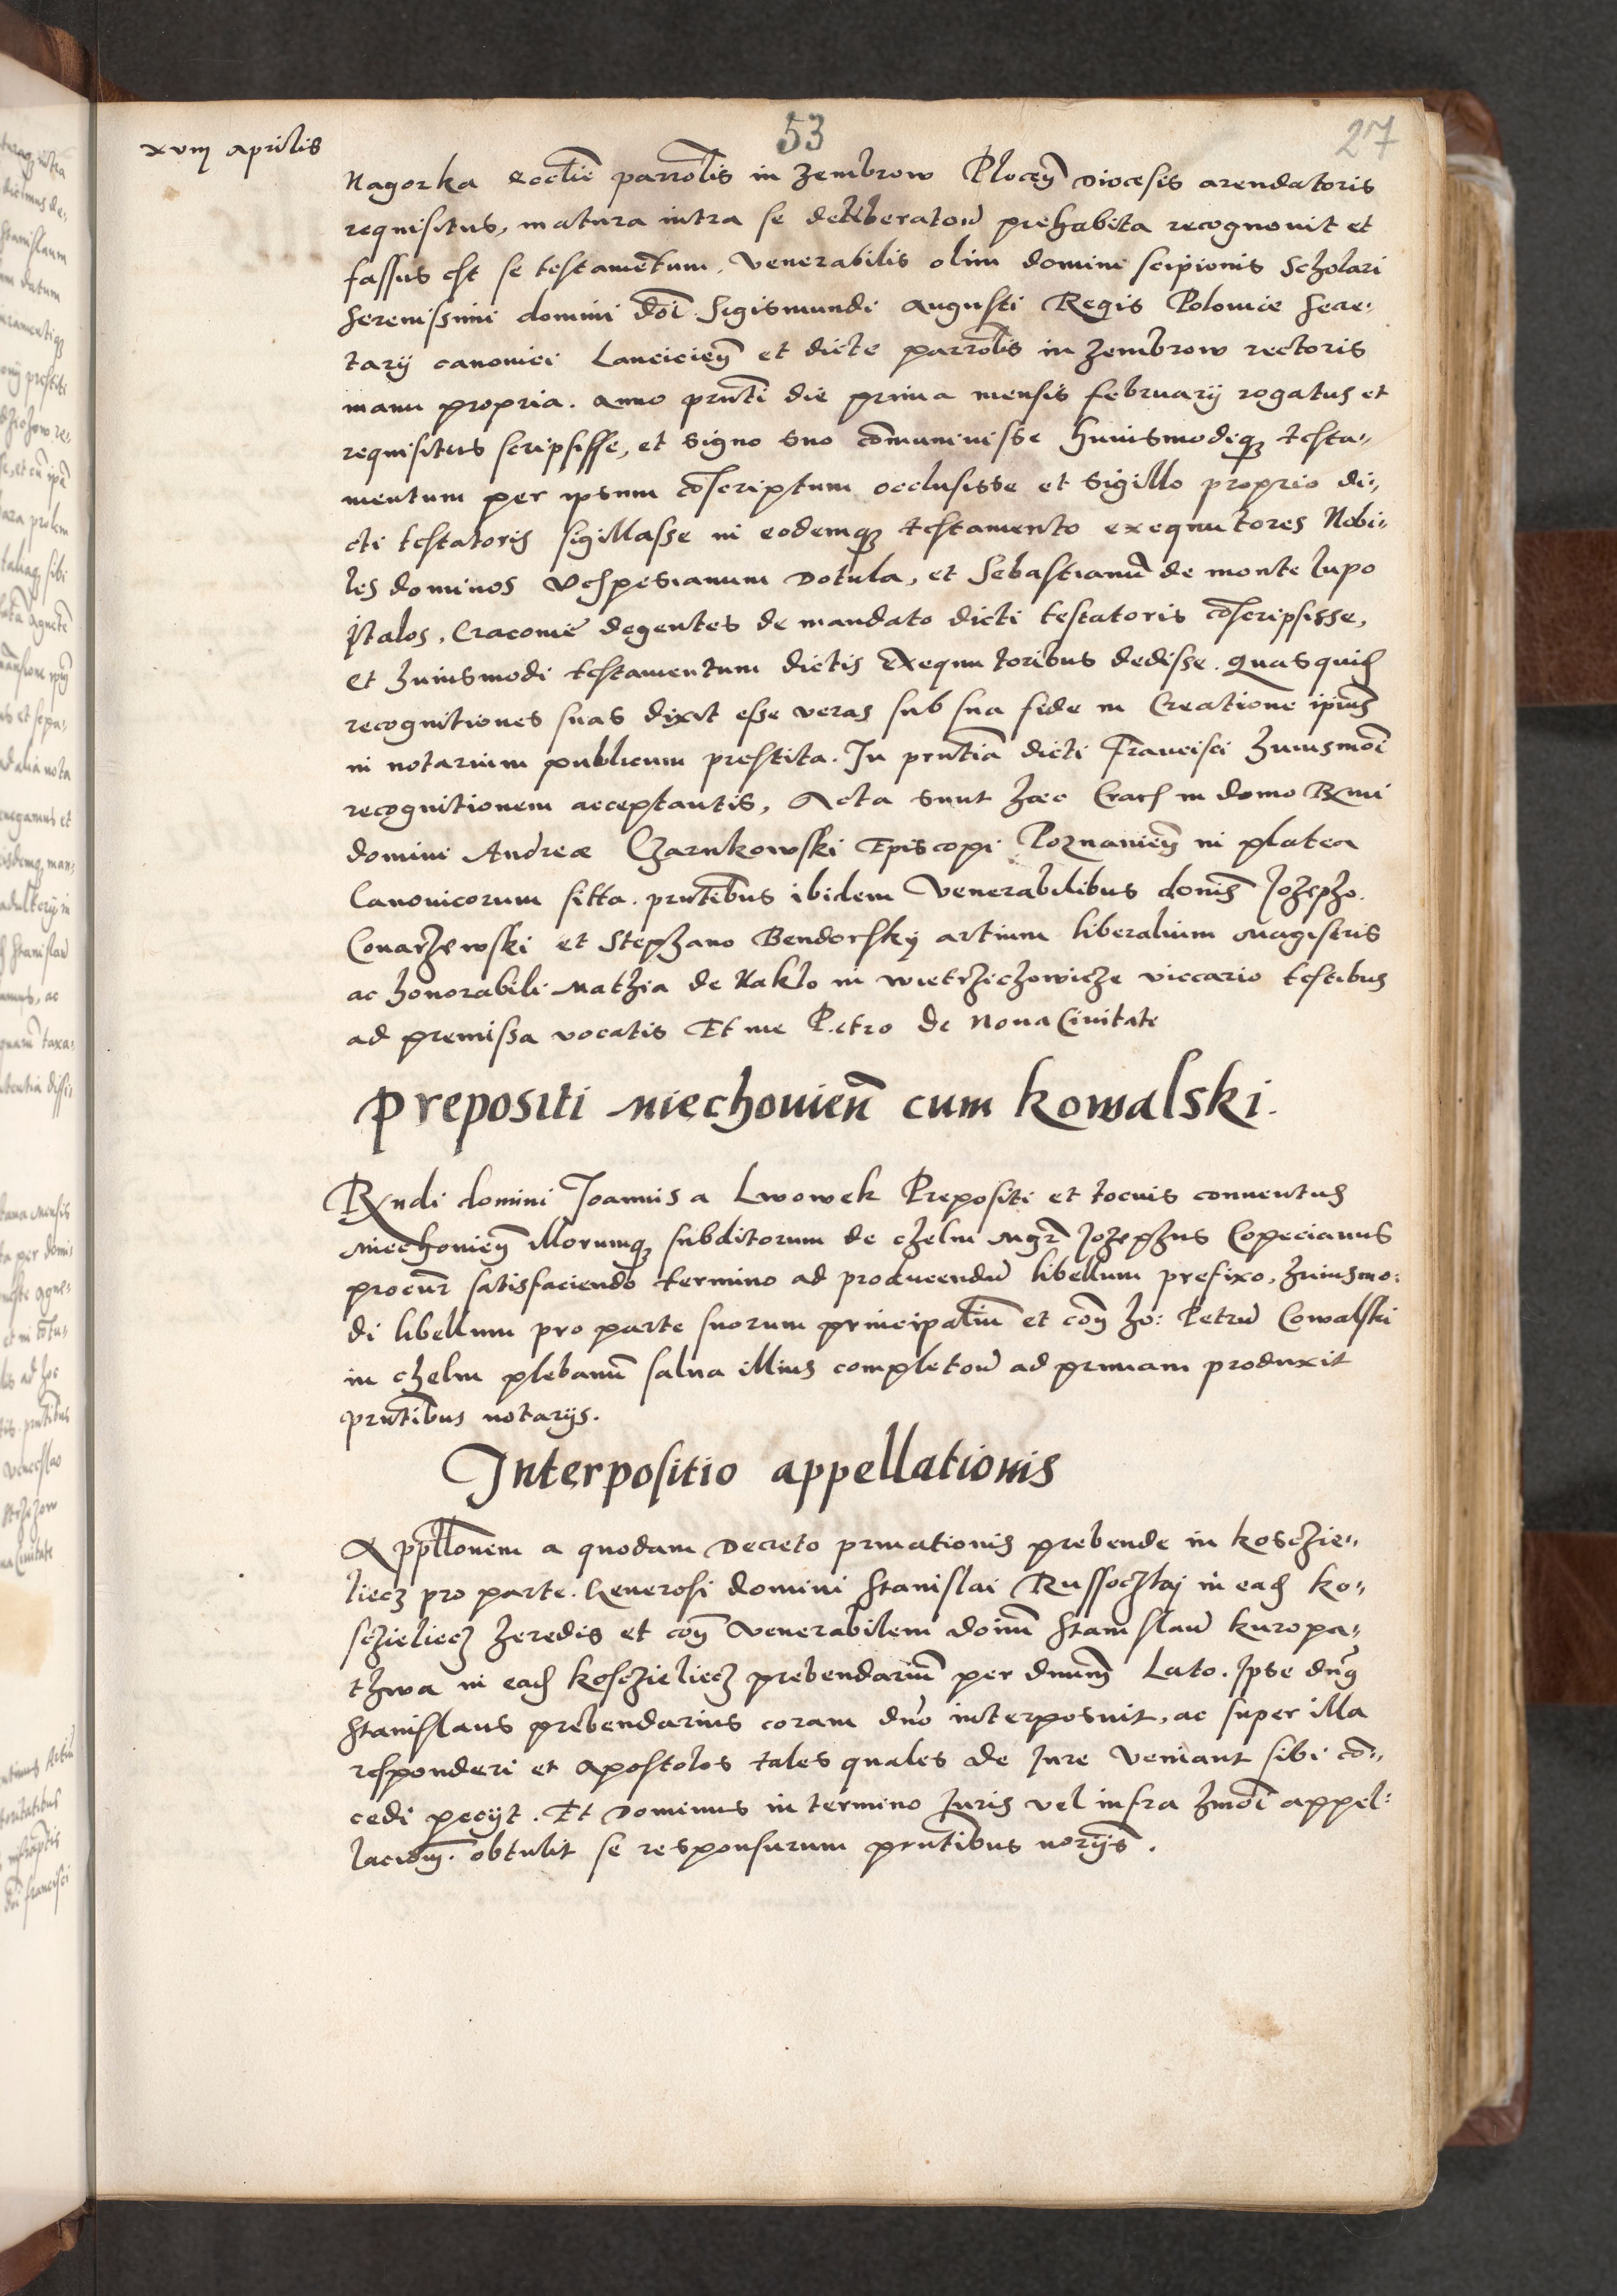 53
27
xviij aprilis
Nagorka ecctie parrotis in Zembrow Plocen̄ diocesis arendatoris
requisitus, matura intra se deliberatoē prehabita recognouit et
fassus est se testamētum, venerabilis olim domini scipionis Scholari
Serenissimi domini dōi Sigismundi augusti Regis Polonie Secre-
tarij canonici Lancicien̄ et dicte parrotis in Zembrow rectoris
manu propria. anno pn̄ti die prima mensis february rogatus et
requisitus scripsisse, et signo suo cōmuniuisse huiusmodiqȝ testa-
mentum per ipsum cōscriptum occlusisse et sigillo proprio di-
cti testatoris sigillasse in eodemqȝ testamento exequutores Nobi-
les dominos Vespesianum Dotula, et Sebastianū de monte lupo
Italos, Cracouie degentes de mandato dicti testatoris cōscripsisse,
et huiusmodi testamentum dictis exequutoribus dedisse. quasquid
recognitiones suas dixit esse veras sub sua fide in Creatione ipius
in notarium publicum prestita. In pn̄tia dicti Francisci huiusmōi
recognitionem acceptantis, Acta sunt hæc Crac in domo Rmi
domini Andreæ Czarnkowski Episcopi Poznanien̄ in platea
Canonicorum sitta. pn̄tibus ibidem Venerabilibus donis Jozepho.
Conarzewski et Stephano Bendorsky artium liberalium magistris
ac honorabili Mathia de Naklo in Wietrzichowicze viccario testibus
ad premissa vocatis Et me Petro de Noua Ciuitate
Prepositi Miechouien̄ cum Kowalski.
Rndi domini Joannis a Lwowek Prepositi et tocius conuentus
Miechouien̄ illorumqȝ subditorum de chelm Mgr̄ Jozephus Copecianus
procur̄ satisfaciendo termino ad producendū libellum prefixo, huiusmo-
di libellum pro parte suorum principaliū et con̄ ho: Petrū Cowalski
in chelm plebanū salua illius completoē ad primam produxit
pn̄tibus notarijs.
Interpositio appellationis
Appłłonem a quodam Decreto priuationis prebende in Kosczie-
liecz pro parte. Generosi domini Stanislai Russoczkj in ead Ko-
sczieliecz heredis et con̄ Venerabilem donū Stanislaū Kuropa-
thwa in ead Kosczieliecz prebendariū per dnum̄ Lato. Ipse dn̄s
Stanislaus prebendarius coram dn̄o interposuit, ac super illa
responderi et apostolos tales quales de Jure veniant sibi cō-
cedi pecijt. Et Dominus in termino Juris vel infra hmōi appel-
lacion̄. obtulit se responsurum pn̄tibus norijs.